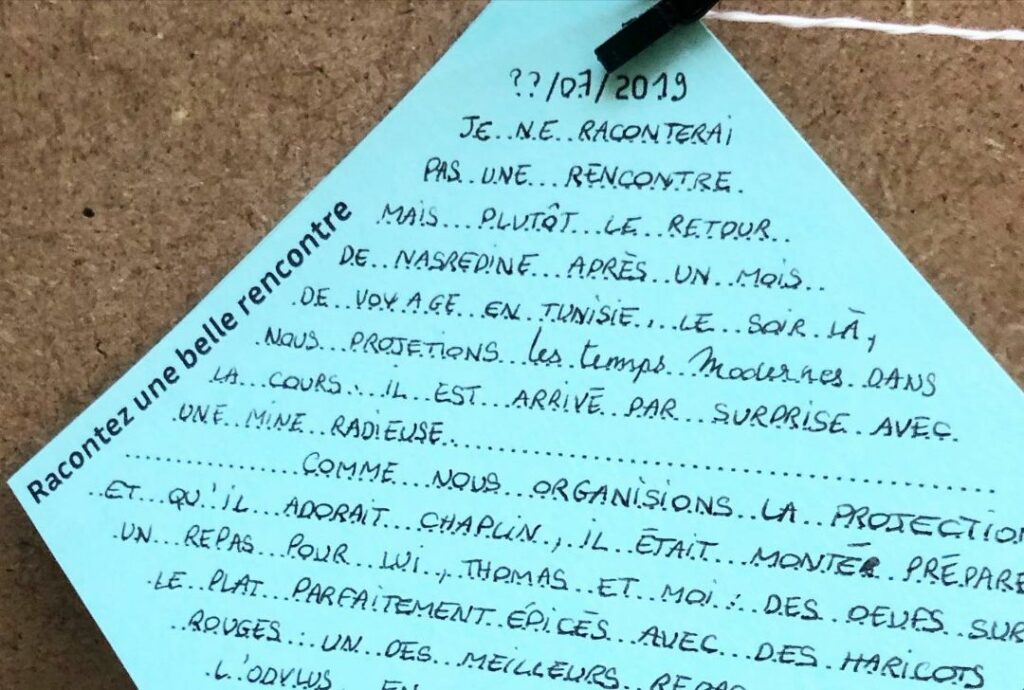 Racontez une belle rencontre
??/07/2019
JE NE RACONTERAI
PAS UNE RENCONTRE.
MAIS PLUTÔT LE RETOUR
DE NASREDINE APRÈS UN MOIS
DE VOYAGE EN TUNISIE, LE SOIR LÀ,
NOUS PROJETIONS les temps Modernes DANS
LA COURS : IL EST ARRIVÉ PAR SURPRISE AVEC
UNE MINE RADIEUSE.
COMME NOUS ORGANISIONS LA PROJECTION
ET QU'IL ADORAIT CHAPLIN, IL ÉTAIT MONTÉ PRÉPARE
UN REPAS POUR LUI, THOMAS ET MOI : DES OEUFS SUR
LE PLAT PARFAITEMENT ÉPICÉS AVEC DES HARICOTS
ROUGES : UN DES MEILLEURS REPAS
EN